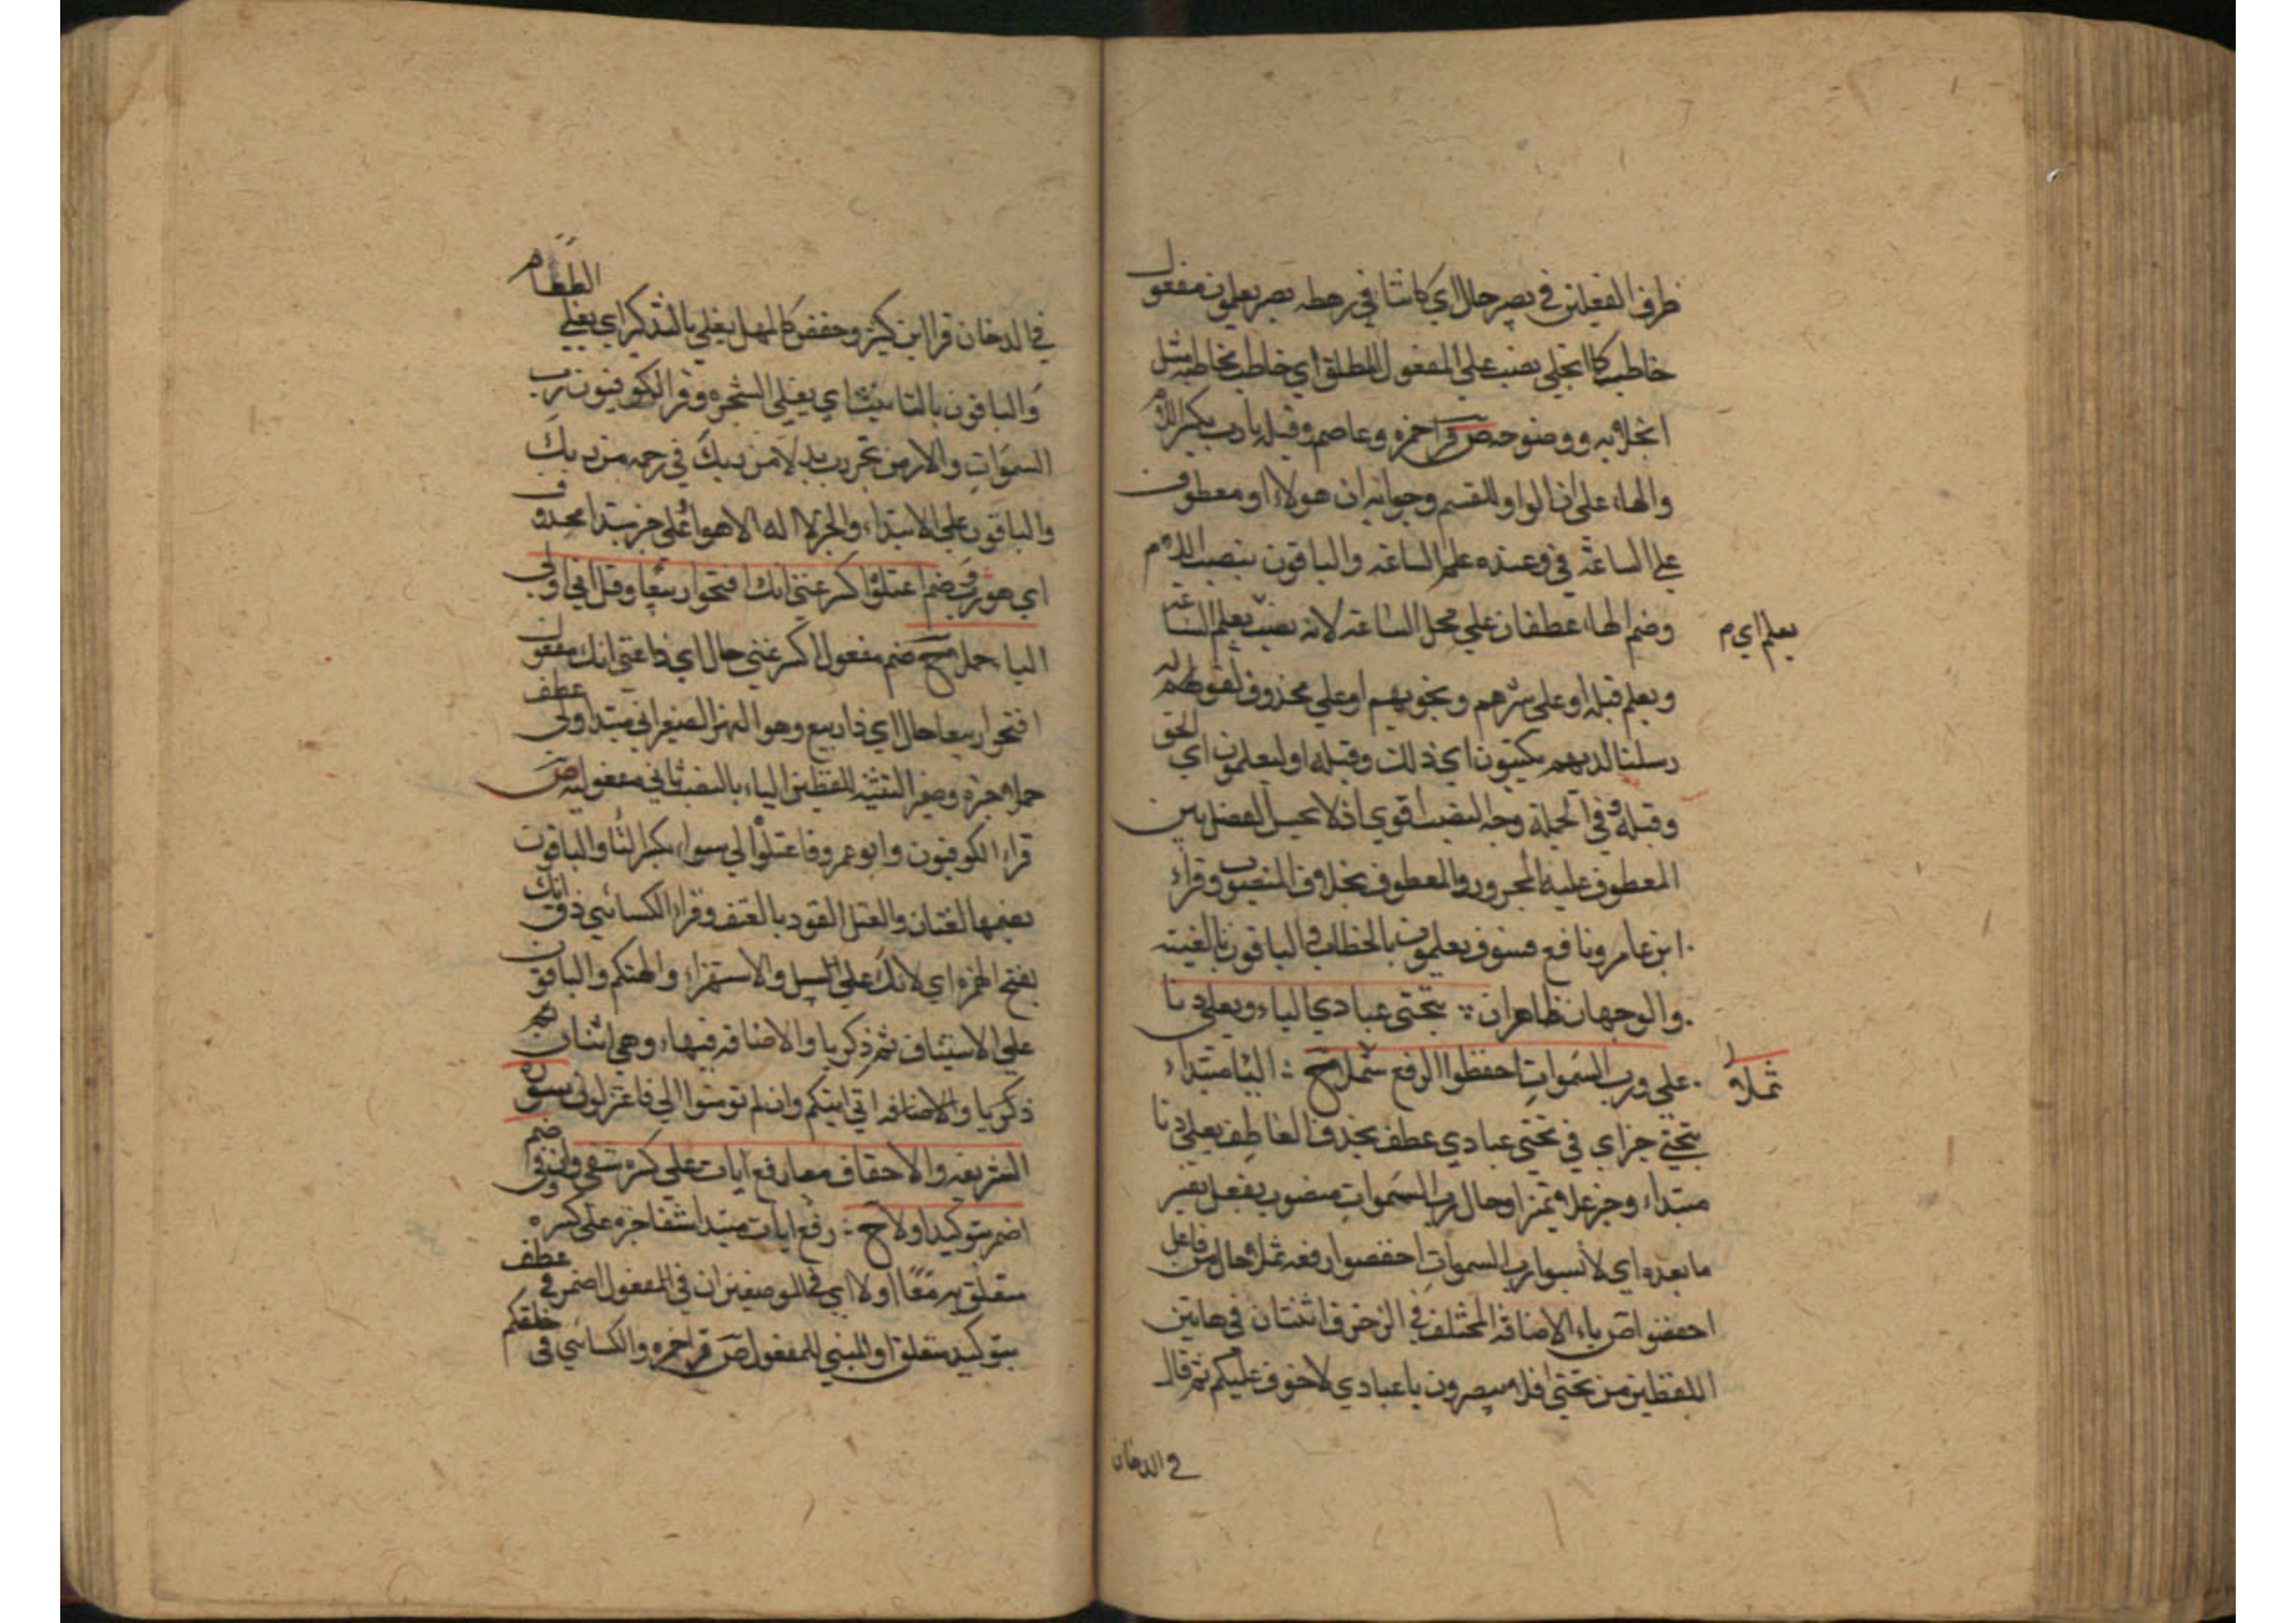 ظرف الفعلين في نصير حال اي كائنا في رهطه نصير يعلمون مفعول
خاطب كما انجلي نصب علي المفعول المطلق اي خاطب مخاطبة مثل
انجلائه ووضوحه ص قرا حمزه وعاصم وقيله يارب بكسر اللام
والهاء علي ان الواو للقسم وجوابه ان هولاء او معطوف
علي الساعة في وعنده علم الساعه والباقون بنصب اللام
وضم الهاء عطفان علي محل الساعة لانه نصب يعلم الساعة
يعلم اي م
ويعلم قيله او علي سرهم ونجويهم او علي محذوف لقوله
رسلنا لديهم يكتبون اي ذلك وقيله او ليعلمون اي الحق
وقيله وفي الجملة وجه النصب اقوي اذ لا يحسن الفصل بين
المعطوف عليه المجرور والمعطوف بخلاف المنصوب وقراء
ابن عامر ونافع فسوف يعلمون بالخطاب والباقون بالغيبة
والوجهان ظاهران بتحتي عبادي الياء ويغلي دنا
علي ورب السموات اخفضوا الرفع ثملا ح اليا مبتداء
ثملا
بتحتي خبر اي في تحتي عبادي عطف بحذف العاطف يغلي دنا
مبتداء وخبر علا تميز او حال رب السموات منصوب بفعل يفسر
ما بعده اي لابسوا رب السموات اخفضوا رفعه ثملا حال من فاعل
اخفضوا ص ياء الاضافة المختلف في الزخرف اثنتان في هاتين
اللفظين من تحتي افلا تبصرون يا عبادي لا خوف عليكم ثم قال
في الدخان
في الدخان قرا ابن كثير وحفص كالمهل يغلي بالتذكير اي يغلي الطعام
والباقون بالتانيث اي تغلي الشجره وقرا الكوفيون رب
السموات والارض بجر رب بدلا من ربك في رحمه من ربك
والباقون علي الابتداء والخبر لا اله الا هو او علي خبر مبتدا محذوف
اي هو رب وضم اعتلوا اكسر غنى انك افتحوا ربيعا وقل اني ولي
الياء حملا ح ضم مفعول اكسر غني حال اي ذا غني انك مفعول
افتحوا ربيعا حال اي ذا ربيع وهو النهر الصغير اني مبتدا ولي عطف
حملا خبره وضمير التثنية للفظين الياء بالنصب ثاني مفعوليه ص
قراء الكوفيون وابو عمرو فاعتلوا الي سواء بكسر التا والباقون
بضمها لغتان والعتل القود بالعنف وقراء الكسائي ذق انك
بفتح الهمزه اي لانك علي السبيل والاستهزاء والتهكم والباقون
علي الاستيناف ثم ذكر يا والاضافه فيها وهي اثنتان
ذكر يا والاضافه اني اتيكم وان لم تومنوا الي فاعتزلون سوره
الشريعه والاحقاف معا رفع ايات علي كسره شفي وان وفي ضم
اضمر بتوكيد اولا ح رفع ايات مبتدا شفا خبره علي كسره
متعلق به معا اولا اي في الموضعين ان في المفعول اضمر في عطف
بتوكيد متعلق او المبني للمفعول ص قرا حمزه والكسائي في خلقكم